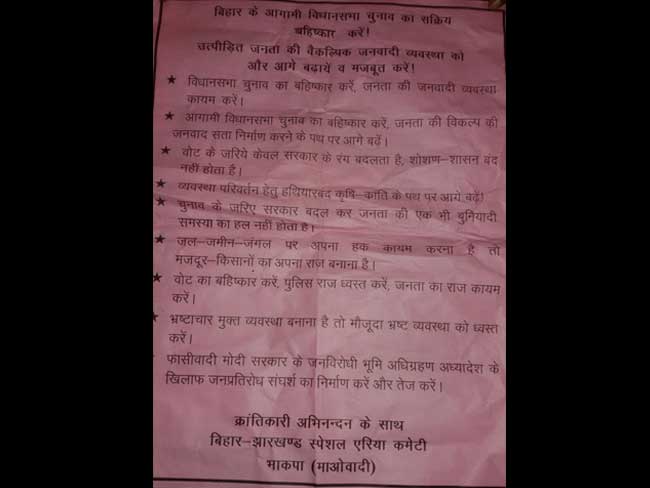 बिहार के आगामी विधानसभा चुनाव का सक्रिय
बहिष्कार करें!
उत्पीड़ित जनता की वैकल्पिक जनवादी व्यवस्था को
और आगे बढ़ायें व मजबूत करें!
★ विधानसभा चुनाव का बहिष्कार करें, जनता की जनवादी व्यवस्था
कायम करें।
★ आगामी विधानसभा चुनाव का बहिष्कार करें, जनता की विकल्प की
जनवाद सता निर्माण करने के पथ पर आगे बढ़ें।
★ वोट के जरिये केवल सरकार के रंग बदलता है, शोशण–शासन बंद
नहीं होता है।
★ व्यवस्था परिवर्तन हेतु हथियारबंद कृषि–क्रांति के पथ पर आगे बढ़ें!
★ चुनाव के जरिए सरकार बदल कर जनता की एक भी बुनियादी
समस्या का हल नहीं होता है।
★ जल–जमीन–जंगल पर अपना हक कायम करना है तो
मजदूर–किसानों का अपना राज बनाना है।
★ वोट का बहिष्कार करें, पुलिस राज ध्वस्त करें, जनता का राज कायम
करें।
★ भ्रष्टाचार मुक्त व्यवस्था बनाना है तो मौजूदा भ्रष्ट व्यवस्था को ध्वस्त
करें।
फासीवादी मोदी सरकार के जनविरोधी भूमि अधिग्रहण अध्यादेश के
खिलाफ जनप्रतिरोध संघर्श का निर्माण करें और तेज करें।
क्रांतिकारी अभिनन्दन के साथ
बिहार–झारखण्ड स्पेशल एरिया कमेटी
भाकपा (माओवादी)